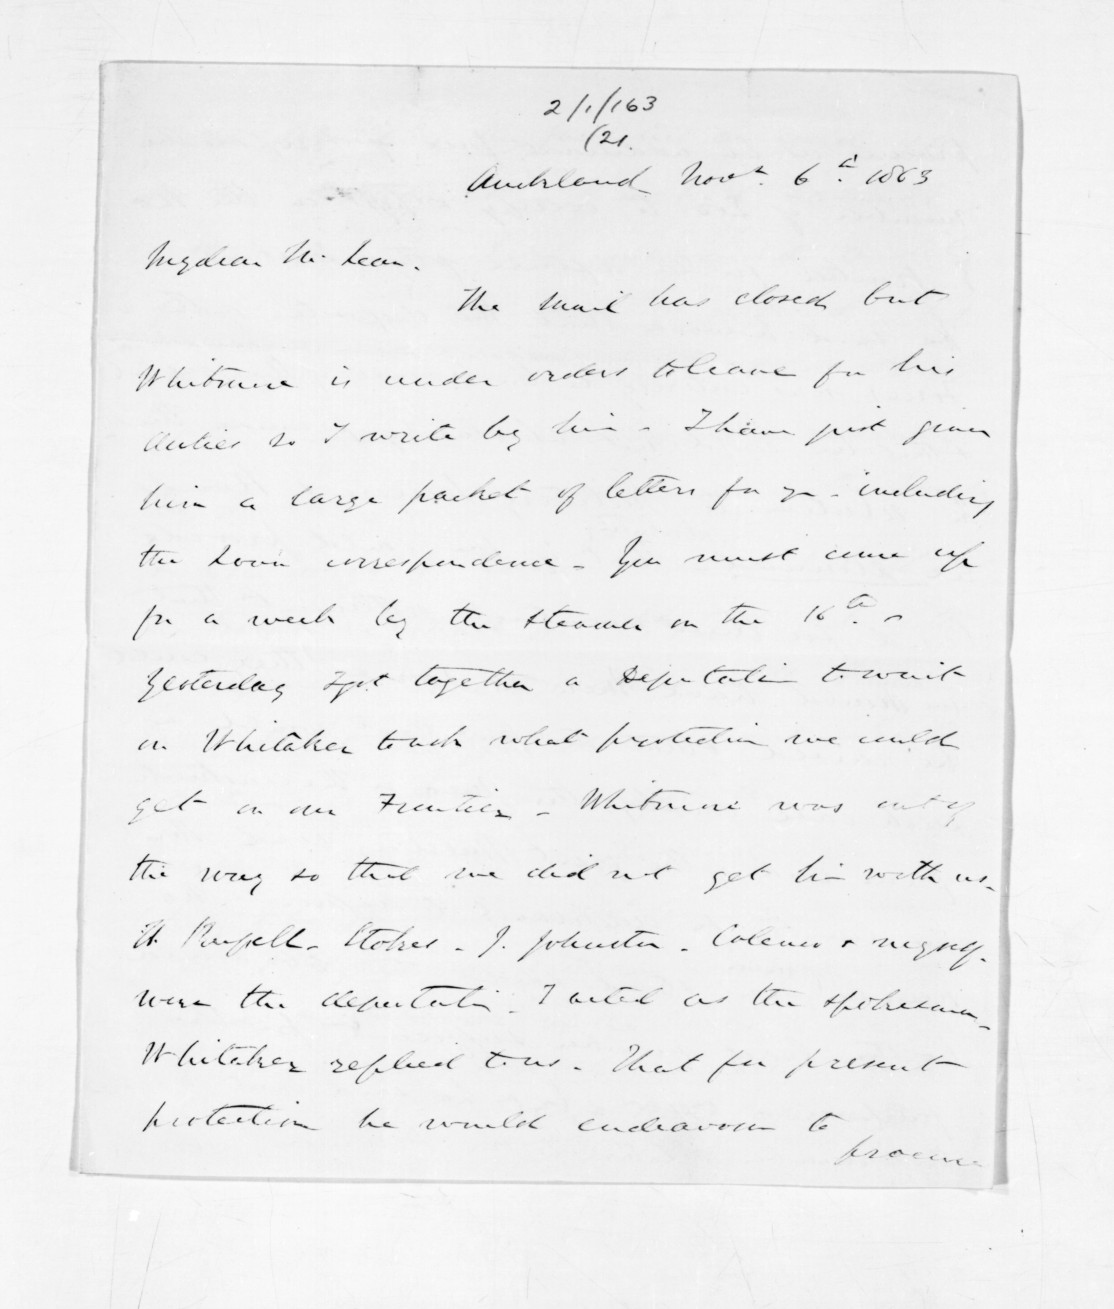 2/1/163
(21.
Auckland Novr. 6th. 1863
My dear McLean.
The Mail has closed but
Whitmore is under orders to leave for his
duties so I write by him - I have just given
him a large packet of letters for you - including
the Loan correspondence - You must come up
for a week by the Steamer on the 16th. -
Yesterday I got together a Deputation to wait
on Whitaker to ask what protection we could
get on our Frontier - Whitmore was out of
the way so that we did not get him with us -
H. Russell - Stokes - J. Johnston - Colenso & myself -
were the deputation - I acted as the spokesman -
Whitaker replied to us - That for present
protection he would endeavour to
procure